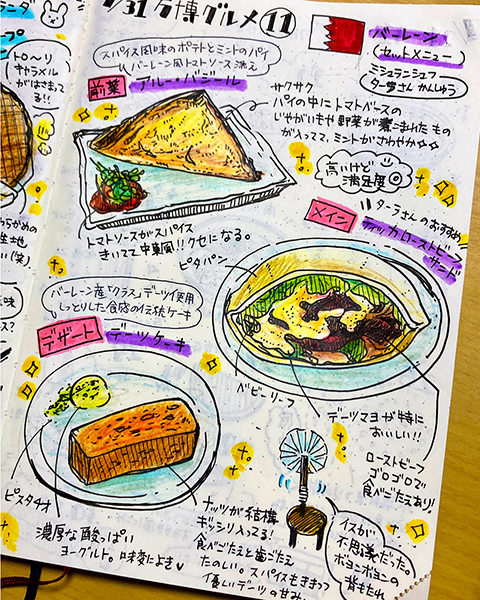 7/31 万博グルメ⑪
バーレーン
(セットメニュー)
ミシュランシェフ
ターラさん かんしゅう
スパイス風味のポテトとミントのパイ
バーレーン風トマトソース添え
前菜 アルー・バジール
サクサク
パイの中にトマトベースの
じゃがいもや野菜が煮こまれたもの
が入ってて、ミントがさわやか
高いけど
満足度◎
トマトソースがスパイス
きいてて中東風!!クセになる。
メイン
ターラさんのおすすめ
ティッカローストビーフ
サンド
ピタパン
ベビーリーフ
デーツマヨが特に
おいしい!!
ローストビーフ
ゴロゴロで
食べごたえあり!
バーレーン産「クラス」デーツ使用
しっとりした食感の伝統ケーキ
デザート デーツケーキ
ピスタチオ
濃厚な酸っぱい
ヨーグルト。味変によき
ナッツが結構
ギッシリ入ってる!
食べごたえと歯ごたえ
たのしい。スパイスもきいてて
優しいデーツの甘み。
イスが
不思議だった。
ボヨンボヨンの
背もたれ
トロ〜リ
キャラメル
がはさまって
る!!